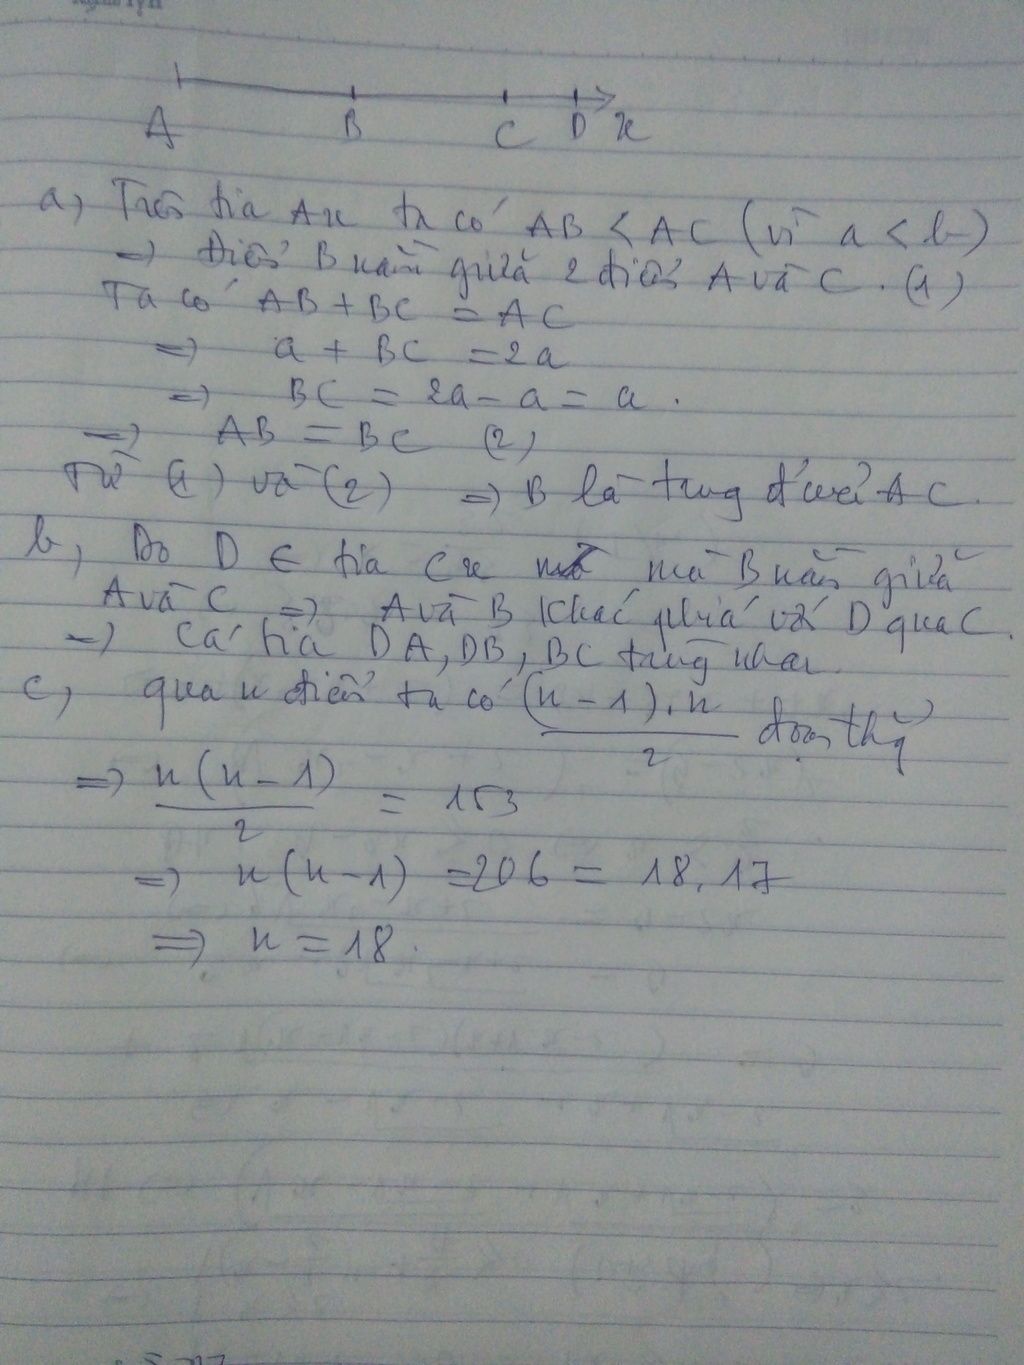 A B C D x
a, Trên tia Ax ta có AB < AC (vì a < b)
=> điểm B nằm giữa 2 điểm A và C. (1)
Ta có AB + BC = AC
=> a + BC = 2a
=> BC = 2a - a = a.
=> AB = BC (2)
Từ (1) và (2) => B là trung điểm AC.
b, Do D ∈ tia Cx mà B nằm giữa
A và C => A và B khác phía với D qua C.
=> Các tia DA, DB, BC trùng nhau.
c, qua n điểm ta có (n-1).n/2 đoạn thẳng
=> n(n-1)/2 = 153
=> n(n-1) = 206 = 18.17
=> n = 18.